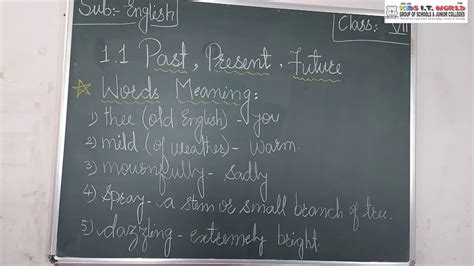 Sub:- English
I.T. WORLD
GROUP OF SCHOOLS & JUNIOR COLLEGES
Class:- VII
1.1 Past, Present, Future
Words Meaning:
1) thee (old English) - you
2) mild (of weather) - warm.
3) mournfully - sadly
4) spray - a stem or small branch of tree.
5) dazzling - extremely bright.